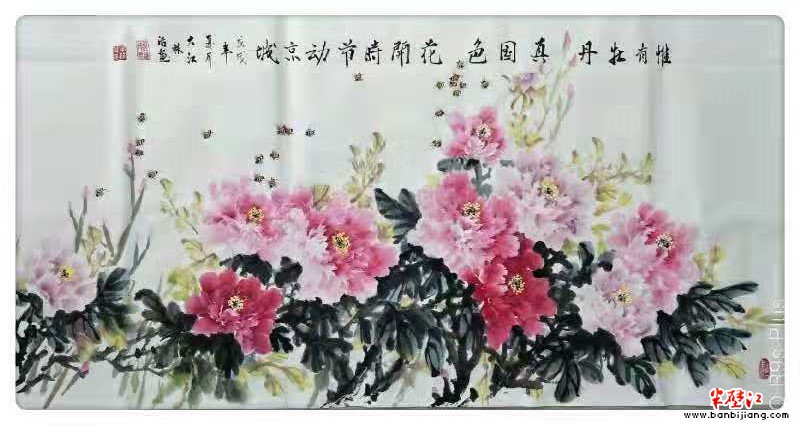 惟有牡丹真国色花開時节动京城
戊戌
年
夏月
大江
林
R9s Plus
半壁江
www.banbijiang.com